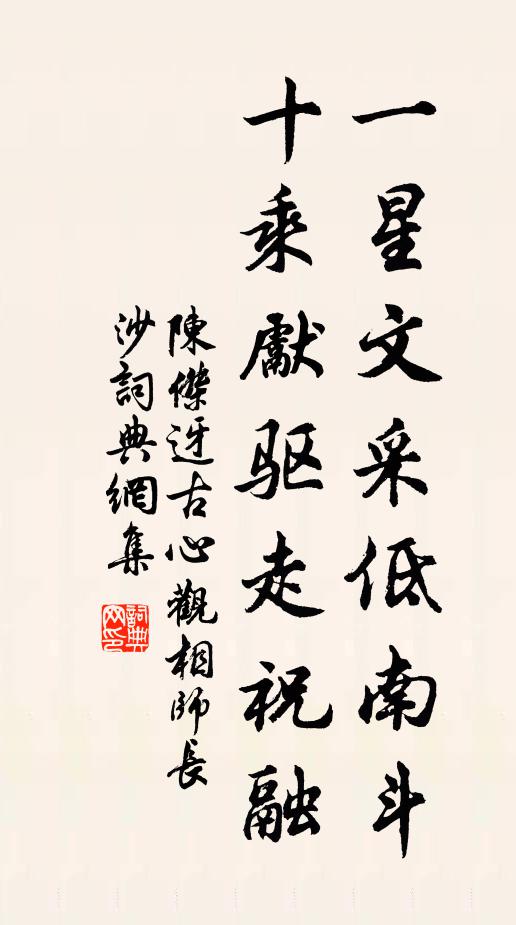 一星文采低南斗
十乘獻驱走祝融
陳傑迓古心觀相師長
沙詞典網集
詞典网印